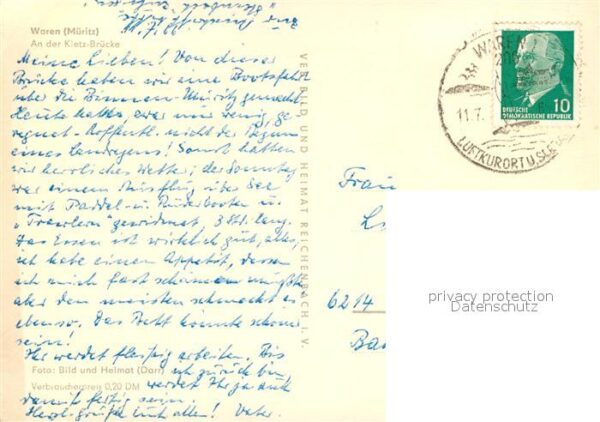 Waren (Müritz)
An der Kietz-Brücke
11.7.66.
Meine Lieben! Von dieser
Brücke haben wir eine Bootsfahrt
über die Binnen-Müritz gemacht.
Heute hatte es ein wenig ge-
regnet - hoffentl. nicht der Beginn
eines Landregens! Sonst hatten
wir herrliches Wetter; der Sonntag
war einem Ausflug über See
mit Paddel- u. Ruderbooten u.
"Trawlern" gewidmet 3 Std. lang.
Das Essen ist wirklich gut, alles,
ich habe einen Appetit, dessen
ich mich fast schämen müßte
aber den meisten schmeckt es
ebenso. Das Bett könnte schöner
sein!
Ihr werdet fleißig arbeiten. Bis
ich zurück bin,
werdet Ihr ja auch
damit fertig sein.
Herzl. Grüße Euch allen! Vater.
Foto: Bild und Heimat (Darr)
Verbraucherpreis 0,20 DM
VEB BILD UND HEIMAT REICHENBACH I. V.
WAREN
11.7.
LUFTKURORT U.
DEUTSCHE
DEMOKRATISCHE REPUBLIK
10
Frau
6214
privacy protection
Datenschutz